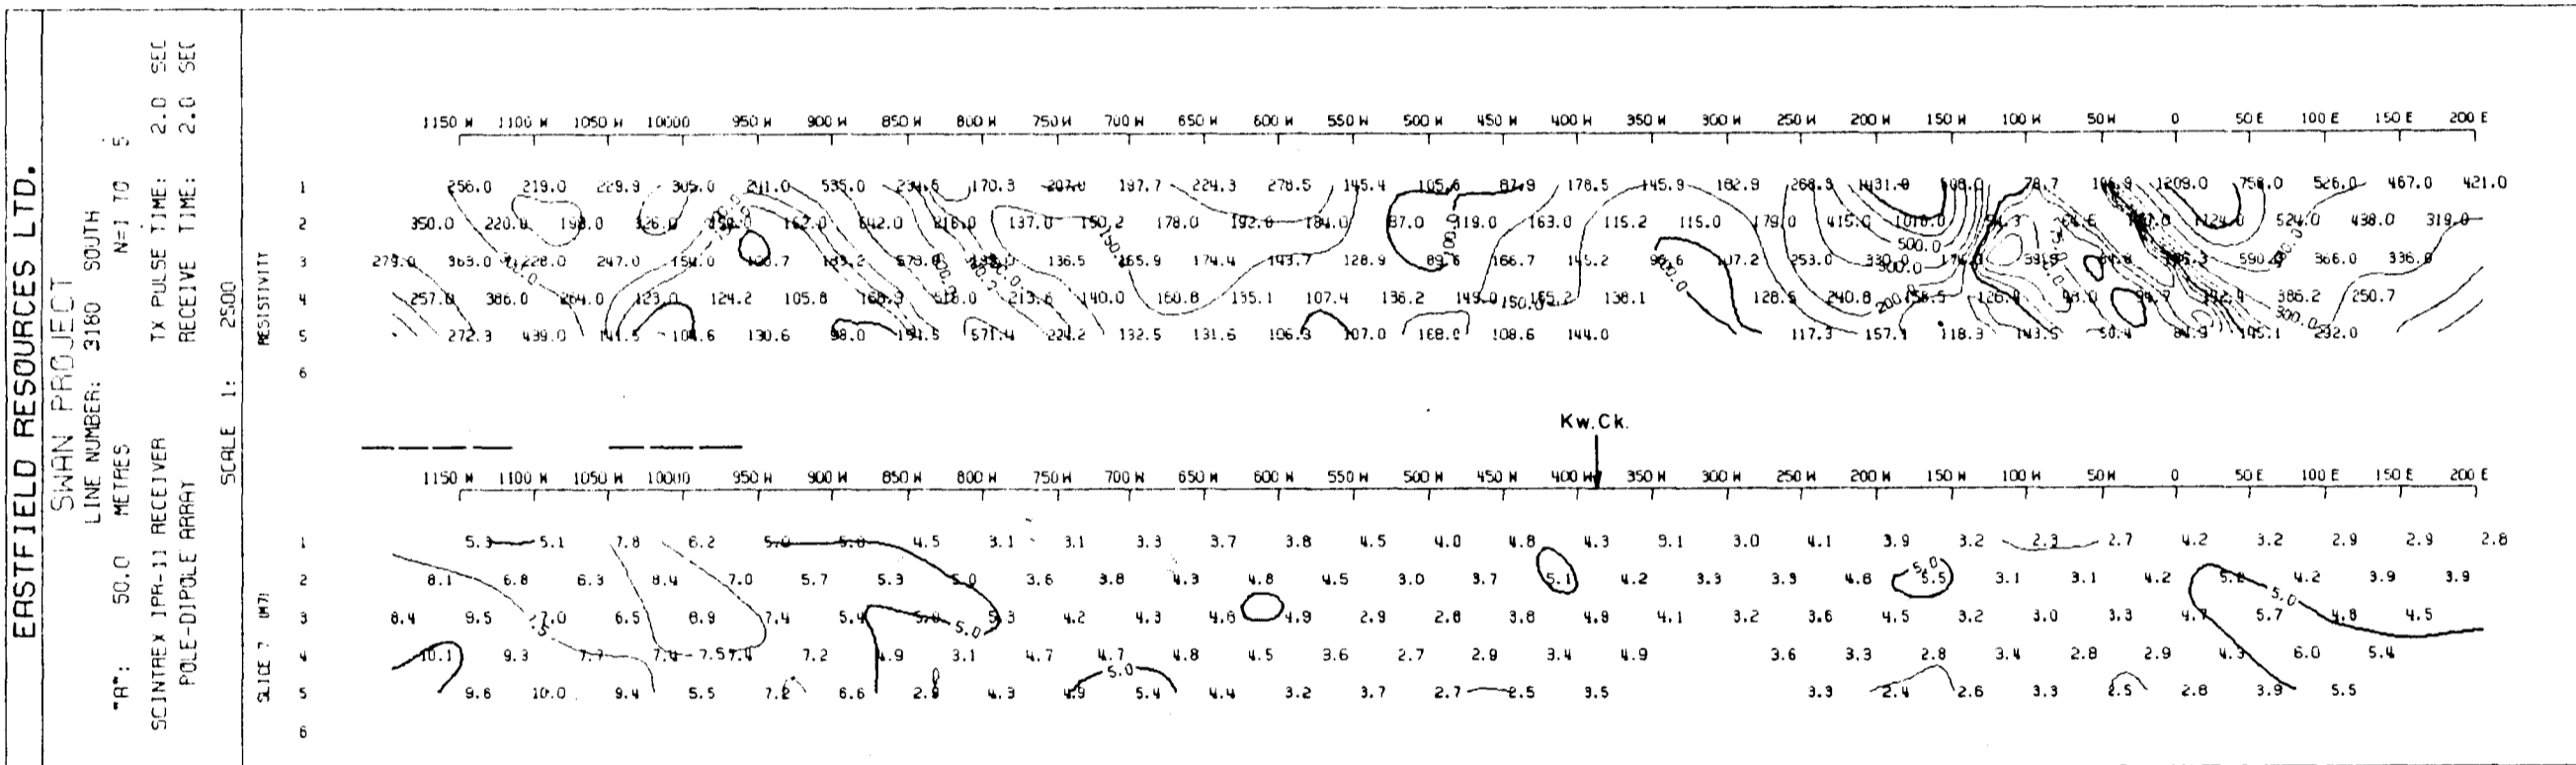 EASTFIELD RESOURCES LTD.
SWAN PROJECT
LINE NUMBER: 3180 SOUTH
"A": 50.0 METRES N=1 TO 5
SCINTREX IPR-11 RECEIVER TX PULSE TIME: 2.0 SEC
POLE-DIPOLE ARRAY RECEIVE TIME: 2.0 SEC
SCALE 1: 2500
RESISTIVITY
1150 W 1100 W 1050 W 10000 950 W 900 W 850 W 800 W 750 W 700 W 650 W 600 W 550 W 500 W 450 W 400 W 350 W 300 W 250 W 200 W 150 W 100 W 50 W 0 50 E 100 E 150 E 200 E
1 256.0 219.0 229.9 305.0 241.0 535.0 170.3 197.7 224.3 278.5 145.4 105.6 87.9 178.5 145.9 182.9 268.9 1431.0 508.0 78.7 1209.0 758.0 526.0 467.0 421.0
2 350.0 220.0 198.0 326.0 162.0 642.0 216.0 137.0 150.2 178.0 192.6 184.0 87.0 119.0 163.0 115.2 115.0 179.0 415.0 1010.0 1124.0 524.0 438.0 319.0
3 279.0 363.0 228.0 247.0 154.0 136.5 165.9 174.4 143.7 128.9 89.6 166.7 145.2 107.2 253.0 330.0 366.0 336.0
4 257.0 386.0 264.0 123.0 124.2 105.8 213.6 140.0 160.8 135.1 107.4 136.2 149.0 138.1 128.5 240.8 386.2 250.7
5 272.3 439.0 141.5 130.6 98.0 571.4 224.2 132.5 131.6 107.0 168.0 108.6 144.0 117.3 157.1 118.3 143.5 145.1 232.0
6
Kw.Ck.
SLICE 7 (M7)
1150 W 1100 W 1050 W 10000 950 W 900 W 850 W 800 W 750 W 700 W 650 W 600 W 550 W 500 W 450 W 400 W 350 W 300 W 250 W 200 W 150 W 100 W 50 W 0 50 E 100 E 150 E 200 E
1 5.3 5.1 7.8 6.2 4.5 3.1 3.1 3.3 3.7 3.8 4.5 4.0 4.8 4.3 3.0 4.1 3.9 3.2 2.3 2.7 4.2 3.2 2.9 2.9 2.8
2 8.1 6.8 6.3 8.4 7.0 5.7 5.3 5.0 3.6 3.8 4.3 4.8 4.5 3.0 3.7 5.1 4.2 3.3 3.3 4.6 5.5 3.1 3.1 4.2 4.2 3.9 3.9
3 8.4 9.5 7.0 6.5 7.4 5.4 4.2 4.3 4.6 4.9 2.9 2.8 3.8 4.9 4.1 3.2 3.6 4.5 3.2 3.0 3.3 4.7 5.7 4.8 4.5
4 10.1 9.3 7.7 7.2 4.9 3.1 4.7 4.7 4.8 4.5 3.6 2.7 2.9 3.4 4.9 3.6 3.3 2.8 3.4 2.8 2.9 4.3 6.0 5.4
5 9.6 10.0 9.4 5.5 7.2 6.6 4.3 4.9 5.4 4.4 3.2 3.7 2.7 2.5 3.5 3.3 2.4 2.6 3.3 2.5 2.8 3.9 5.5
6